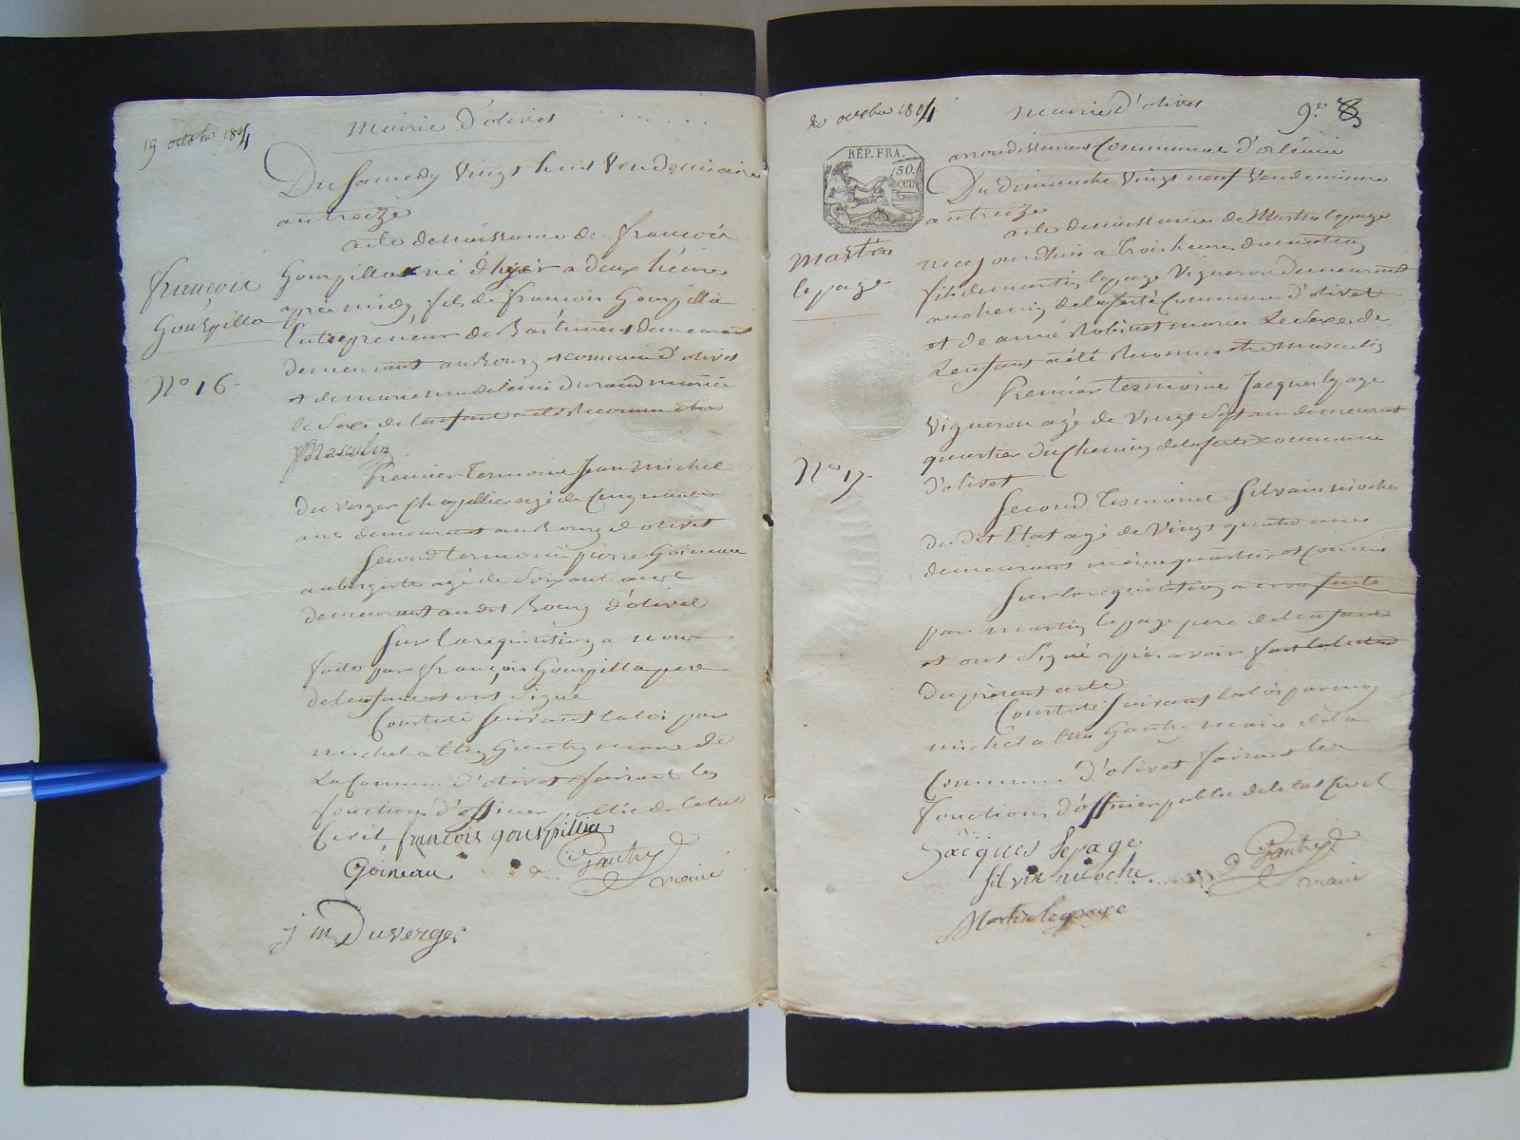 19 octobre 1804
Mairie d'olivet
Du Samedy Vingt huit Vendemiaire
an treize
acte de naissance de françois
françois
Gourpilla
Gourpilla né d'hyer a deux heures
apres midy fils de françois Gourpilla
Entrepreneur de Bastiment demeurant
demeurant au Bourg et commune d'olivet
N° 16
et de marie Durand mariée
le Sexe de lenfant a été Reconnu être
Masculin
Premier temoin Jean Michel
du verger Chapellier agé de Cinquante
ans demeurant au Bourg d'olivet
Second temoin pierre Goineau
aubergiste agé de Soixante
demeurant audit Bourg d'olivet
Sur la requisition a nous
faite par françois Gourpilla pere
de lenfant et ont signé
Constaté Suivant la loi par
michel Gautry maire de
La Commune d'olivet faisant les
fonctions d'officier public de letat
Civil françois gourpillia
Goineau Gautry
maire
j m Duverger
20 octobre 1804
Mairie d'olivet
9.e 8
REP. FRA.
50.
CEN.
arrondissement Communal d'orléans
Du dimanche Vingt neuf Vendemiaire
an treize
acte de naissance de Martin lepage
Martin
lepage
né ce jourdhui a trois heures du matin
fils de martin lepage Vigneron demeurant
au chemin de la ferté Commune d'olivet
et de Robinet mariés Le Sexe de
Lenfant a été Reconnu etre Masculin
Premier temoin Jacques lepage
Vigneron agé de Vingt Sept ans demeurant
quartier du Chemin de la ferté commune
N° 17
d'olivet
Second temoin Silvain nioche
dudit Etat agé de Vingt quatre ans
demeurant même quartier et commune
Sur la requisition a nous faite
par martin lepage pere de lenfant
et ont Signé apres avoir fait lecture
Du présent acte
Constaté Suivant la loi par moy
michel Gautry maire de la
Commune d'olivet faisant les
fonctions d'officier public de letat Civil
Jacques Lepage
Silvin nioche Gautry
maire
Martin lepage